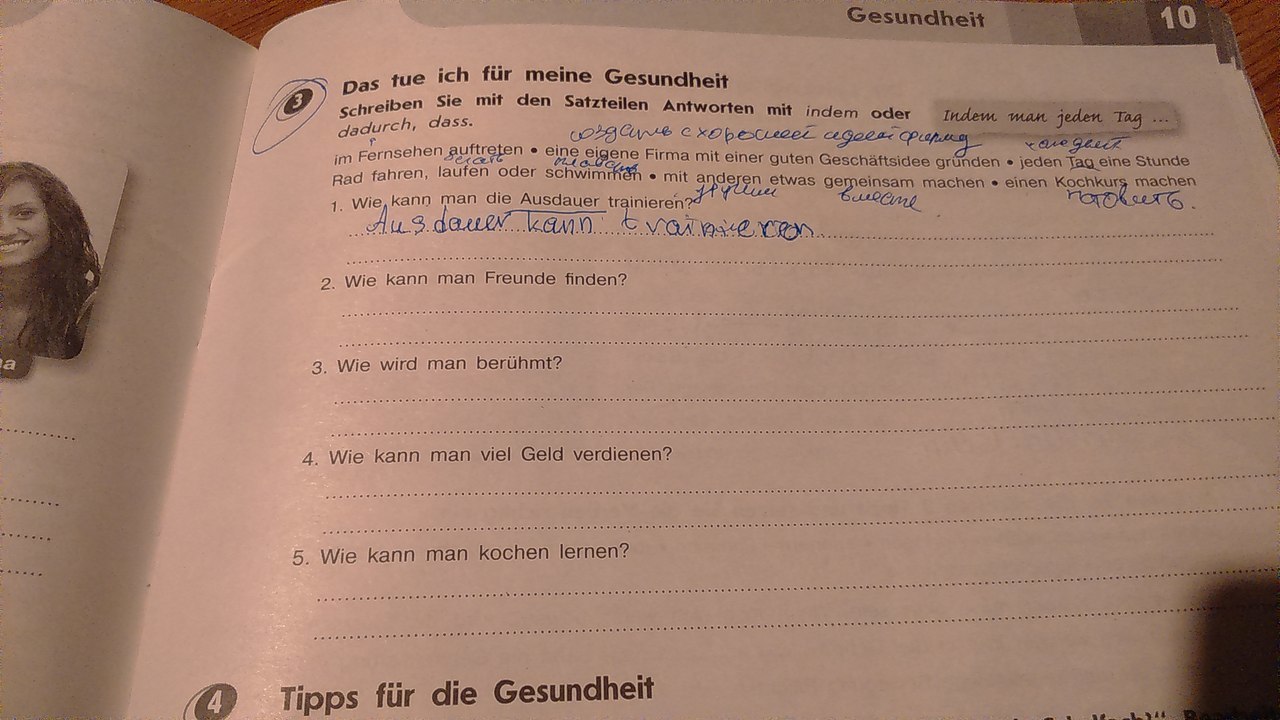 Gesundheit 10
3 Das tue ich für meine Gesundheit
Schreiben Sie mit den Satzteilen Antworten mit indem oder
dadurch, dass.
Indem man jeden Tag ...
создать с хорошей идеей фирму каждый
im Fernsehen auftreten • eine eigene Firma mit einer guten Geschäftsidee gründen • jeden Tag eine Stunde
плавать
Rad fahren, laufen oder schwimmen • mit anderen etwas gemeinsam machen • einen Kochkurs machen
вместе готовить.
1. Wie kann man die Ausdauer trainieren?
Ausdauer kann trainieren
2. Wie kann man Freunde finden?
3. Wie wird man berühmt?
4. Wie kann man viel Geld verdienen?
5. Wie kann man kochen lernen?
4 Tipps für die Gesundheit